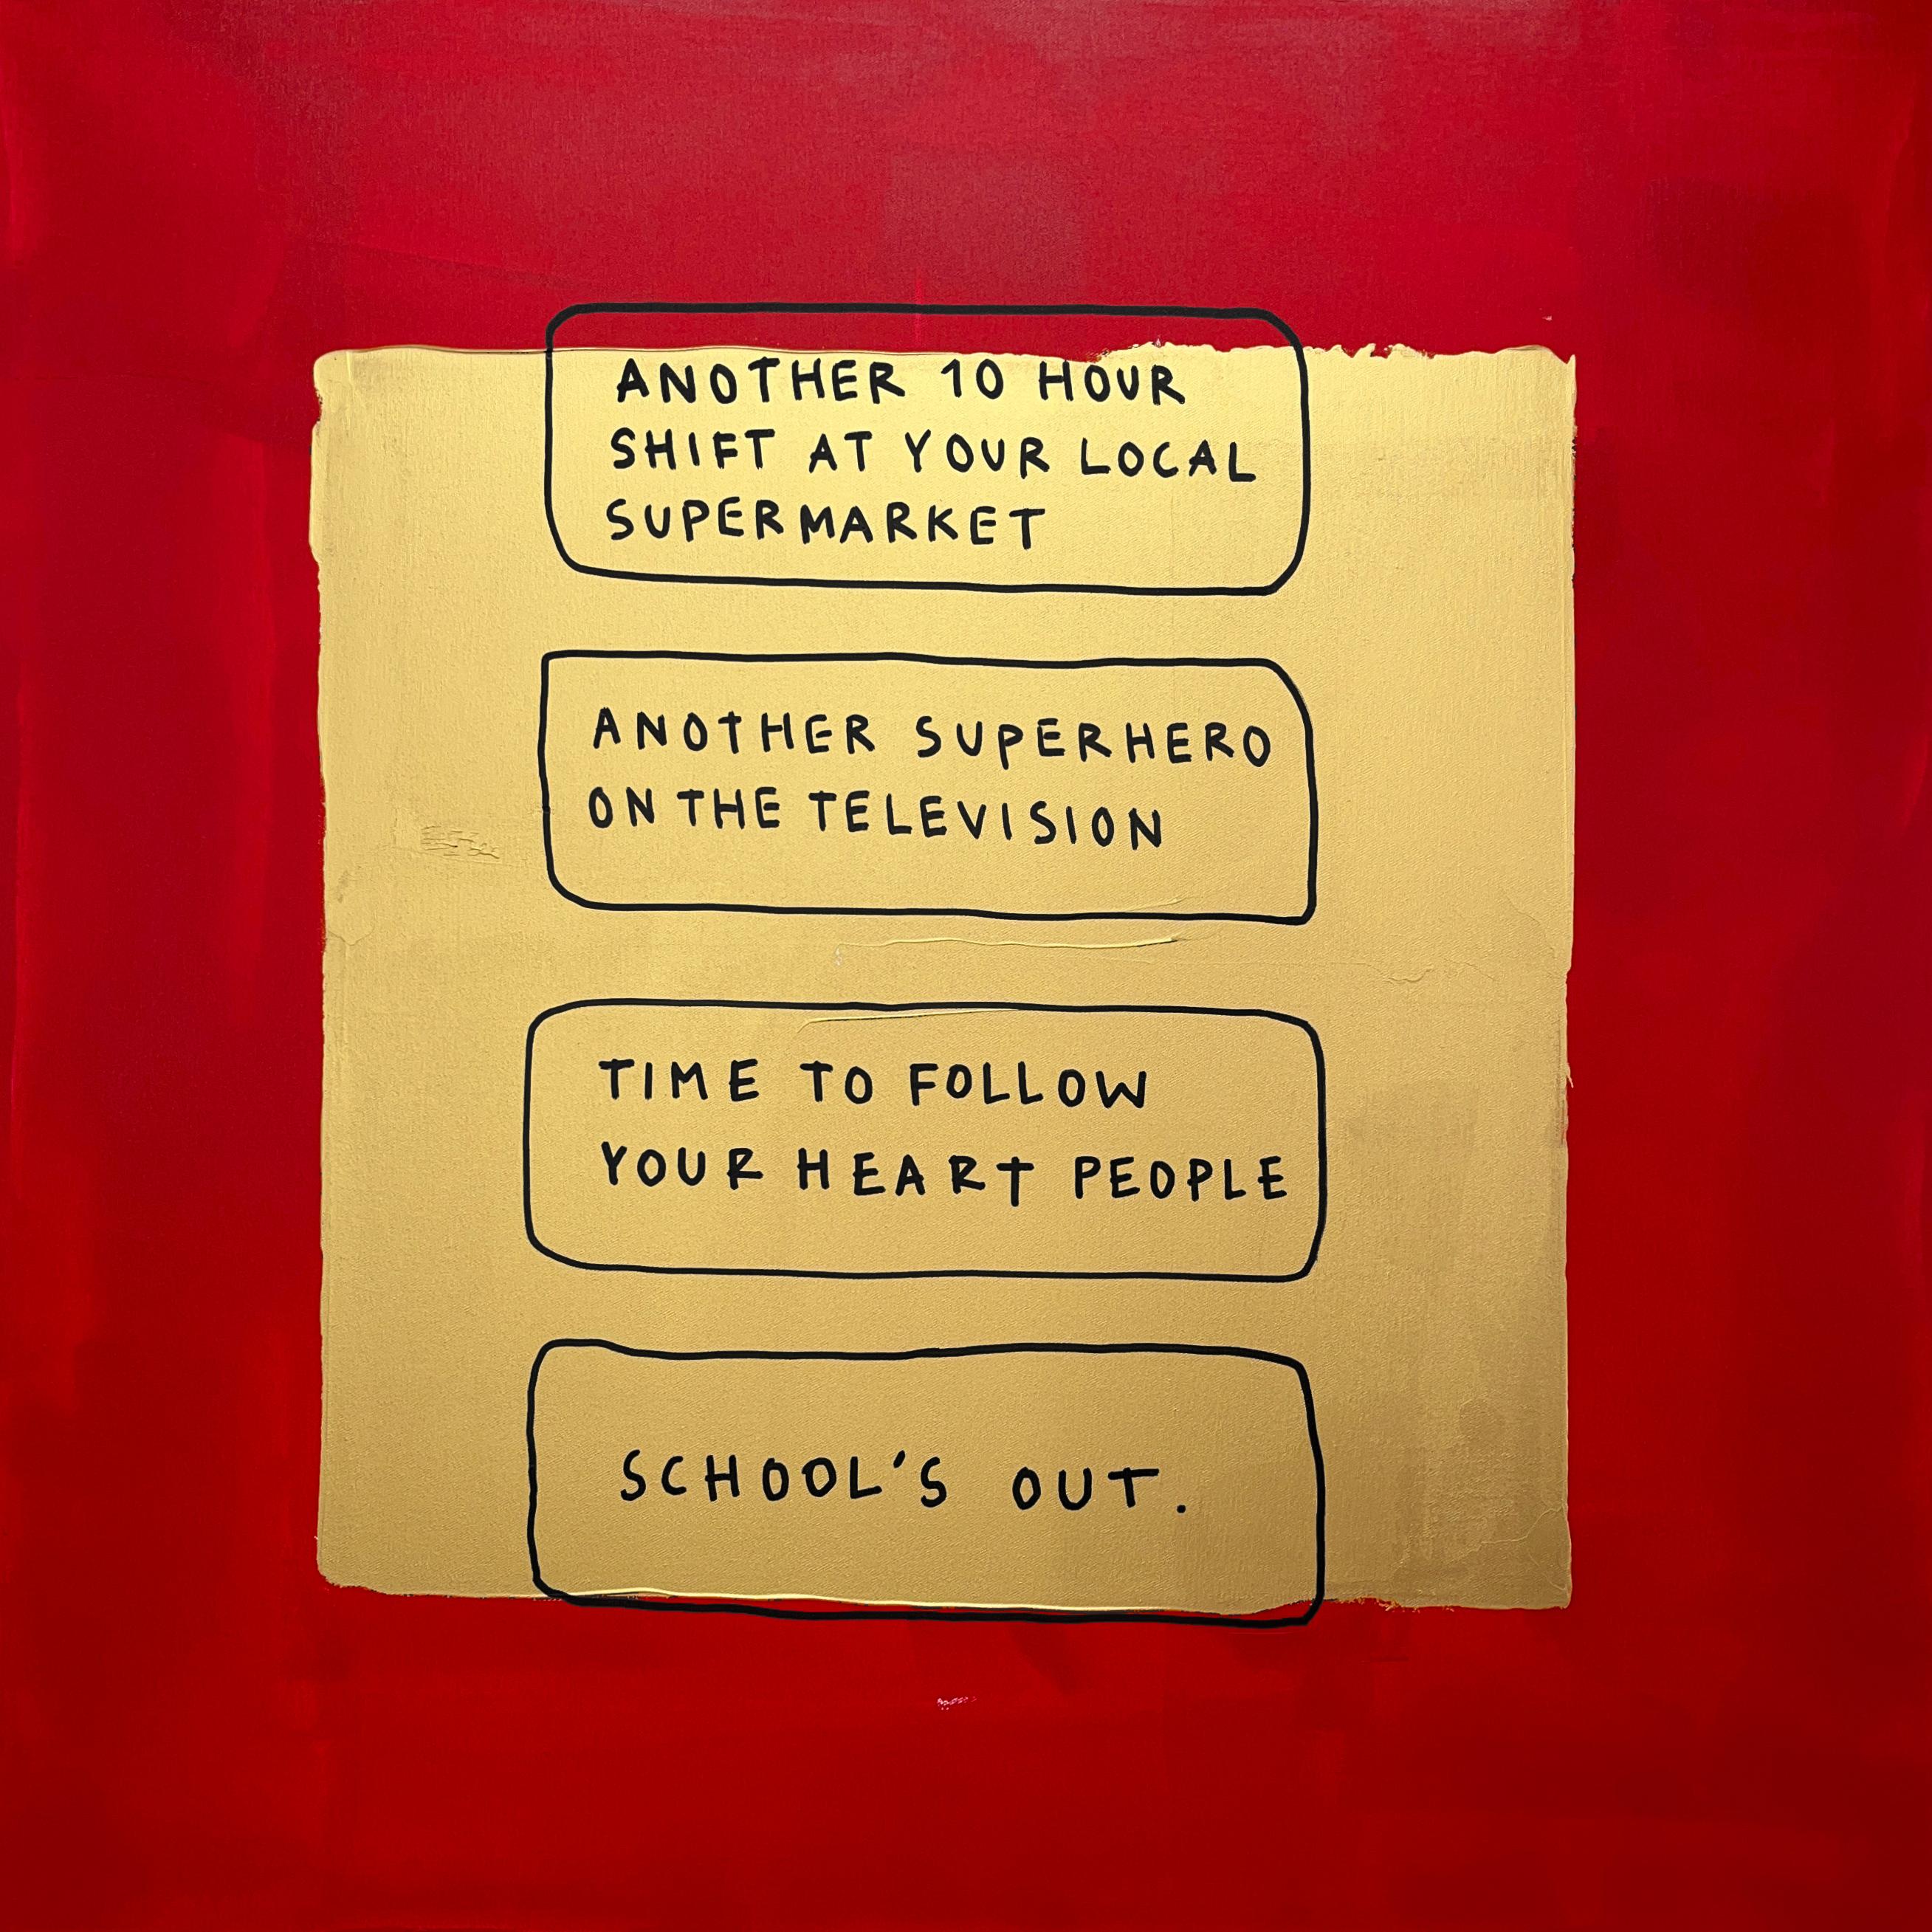 ANOTHER 10 HOUR
SHIFT AT YOUR LOCAL
SUPERMARKET
ANOTHER SUPERHERO
ON THE TELEVISION
TIME TO FOLLOW
YOUR HEART PEOPLE
SCHOOL'S OUT.